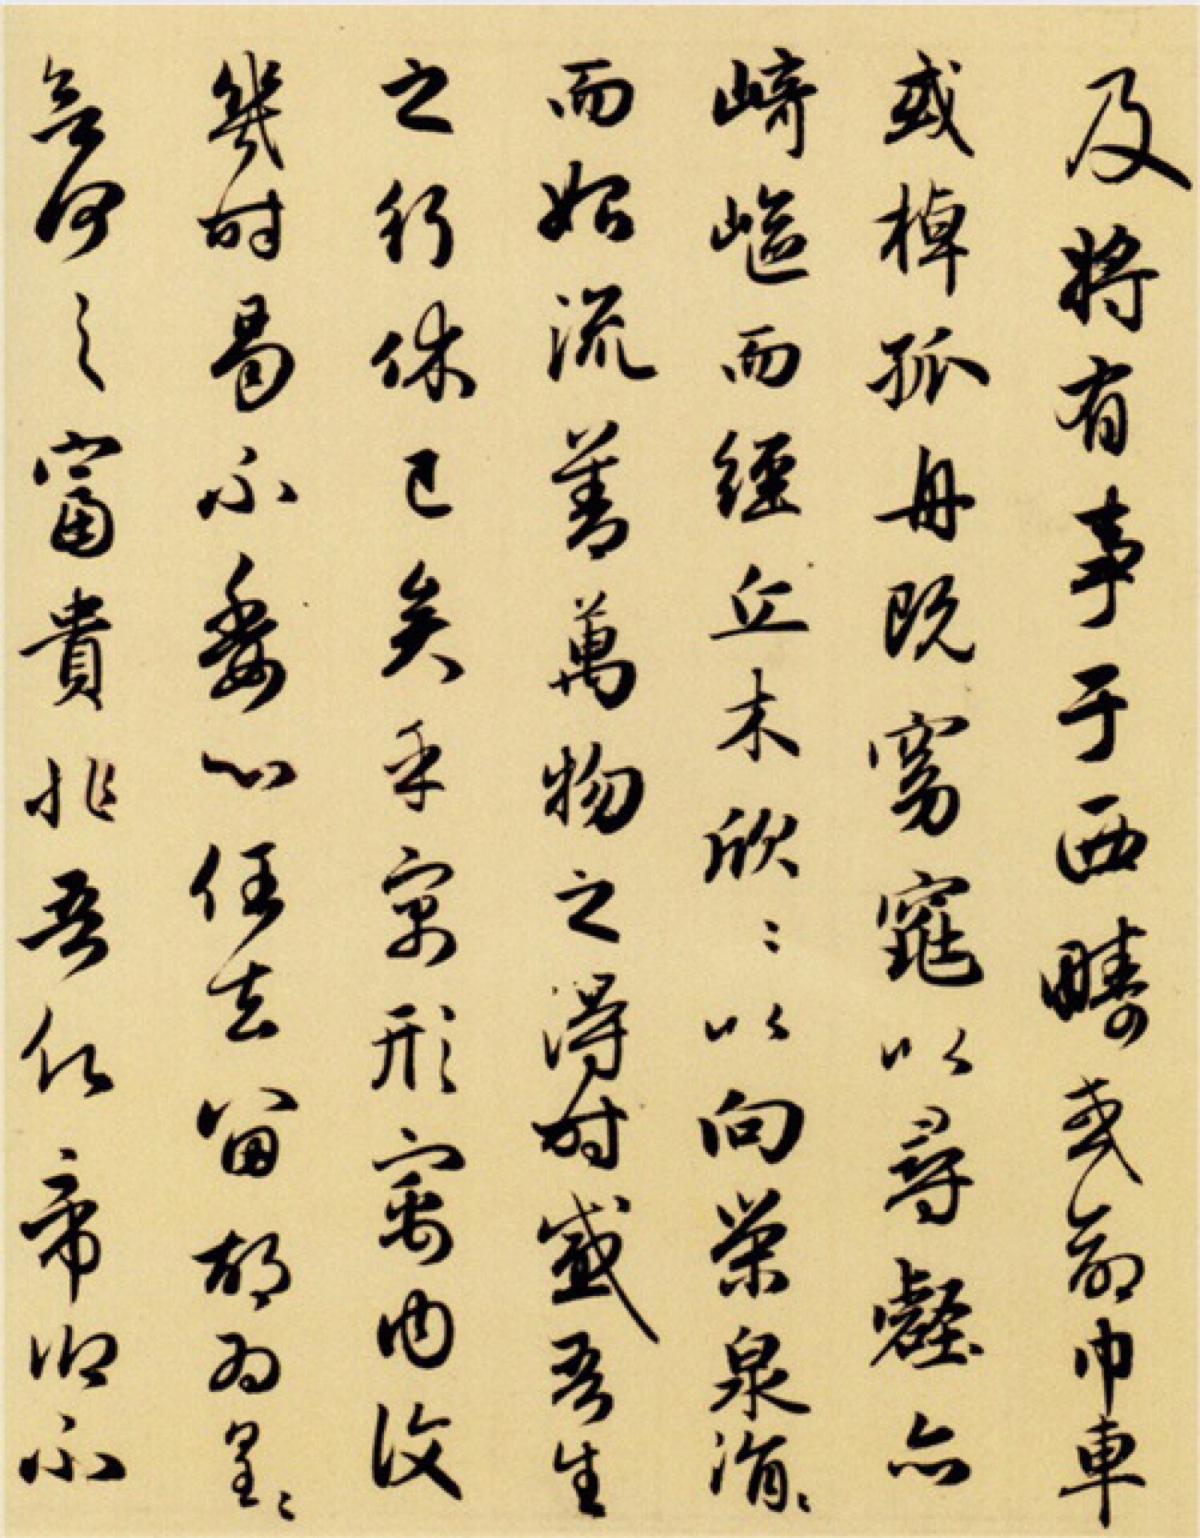 及將有事于西疇或命巾車
或棹孤舟既窈窕以尋壑亦
崎嶇而經丘木欣〻以向榮泉涓〻
而始流善萬物之得時感吾生
之行休已矣乎寓形寓內復
幾時曷不委心任去留胡為皇〻
何之富貴非吾願帝鄉不